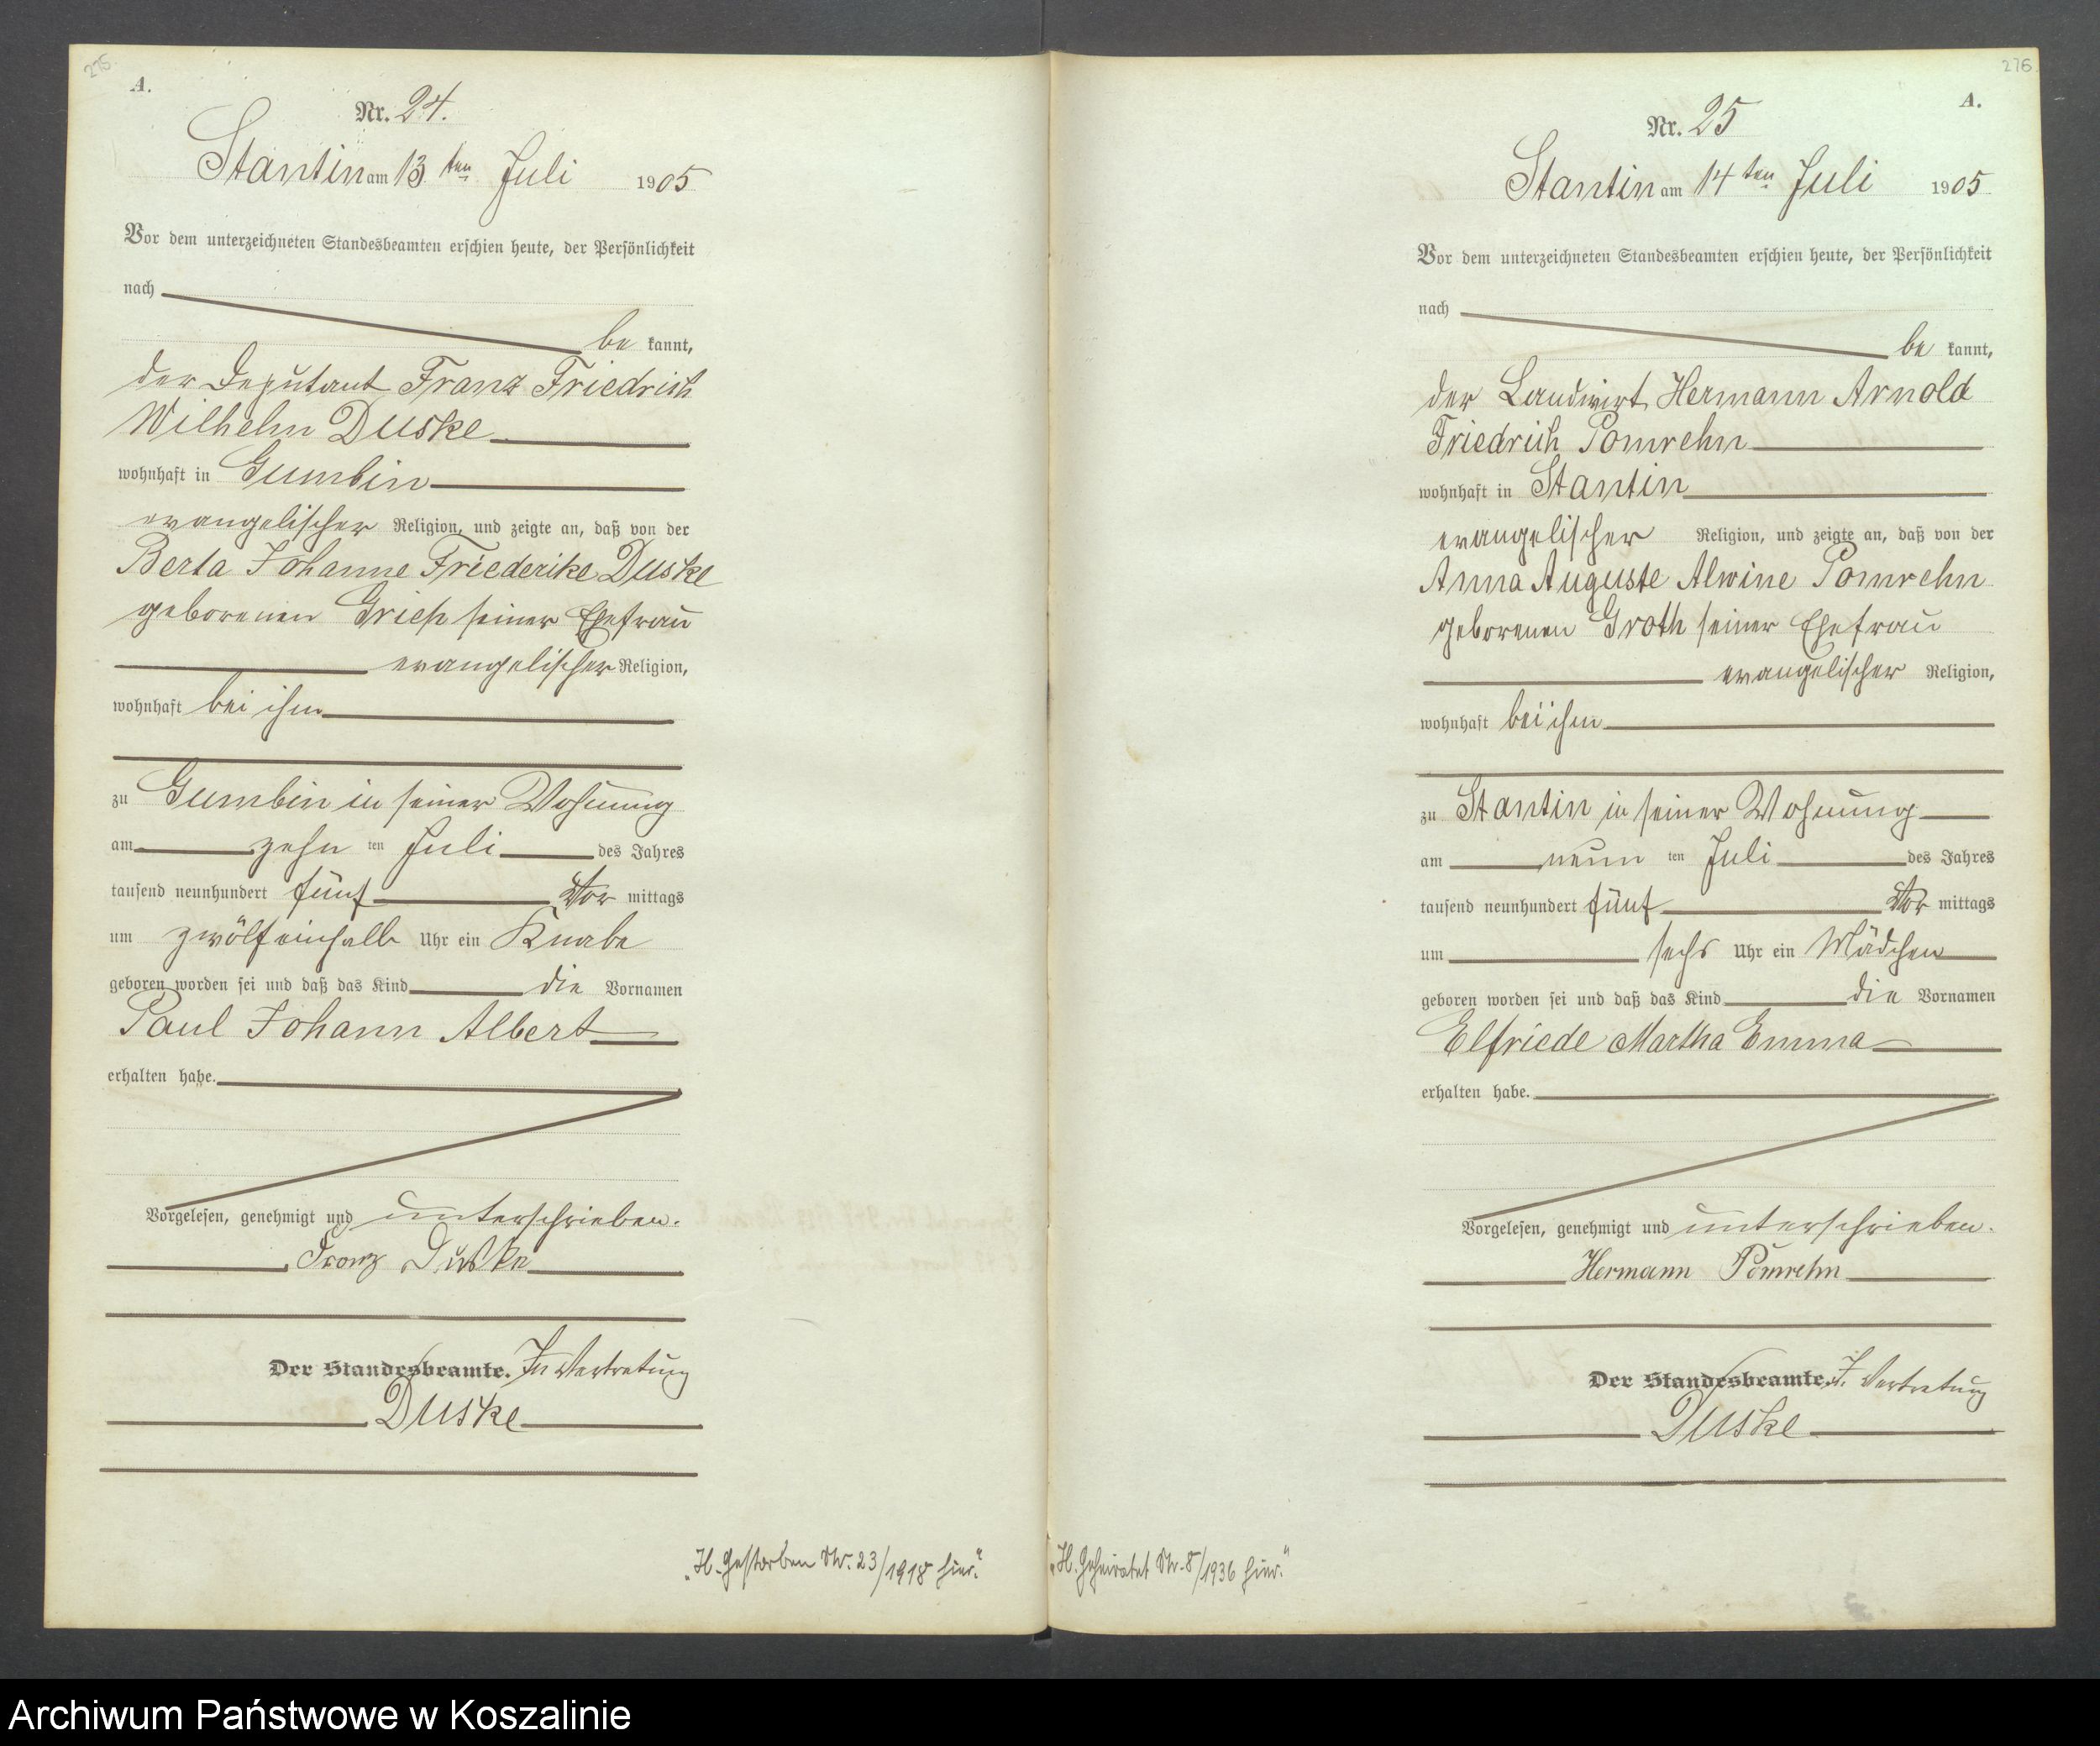 275.
A.
Nr. 24.
Stantin am 13ten Juli 1905
Vor dem unterzeichneten Standesbeamten erschien heute, der Persönlichkeit
nach
be kannt,
der Deputant Franz Friedrich
Wilhelm Duske
wohnhaft in Gumbin
evangelischer Religion, und zeigte an, daß von der
Berta Johanne Friederike Duske
geborenen Griep seiner Ehefrau
evangelischer Religion,
wohnhaft bei ihm
zu Gumbin in seiner Wohnung
am zehn ten Juli des Jahres
tausend neunhundert fünf Vor mittags
um zwölfeinhalb Uhr ein Knabe
geboren worden sei und daß das Kind die Vornamen
Paul Johann Albert
erhalten habe.
Vorgelesen, genehmigt und unterschrieben.
Franz Duske
Der Standesbeamte. In Vertretung
Duske
„H. Gestorben Nr. 23/1918 hier."
276.
A.
Nr. 25
Stantin am 14ten Juli 1905
Vor dem unterzeichneten Standesbeamten erschien heute, der Persönlichkeit
nach
be kannt,
der Landwirt Hermann Arnold
Friedrich Pomrehn
wohnhaft in Stantin
evangelischer Religion, und zeigte an, daß von der
Anna Auguste Alwine Pomrehn
geborenen Groth seiner Ehefrau
evangelischer Religion,
wohnhaft bei ihm
zu Stantin in seiner Wohnung
am neun ten Juli des Jahres
tausend neunhundert fünf Vor mittags
um sechs Uhr ein Mädchen
geboren worden sei und daß das Kind die Vornamen
Elfriede Martha Emma
erhalten habe.
Vorgelesen, genehmigt und unterschrieben.
Hermann Pomrehn
Der Standesbeamte. I. Vertretung
Duske
„H. Geheiratet Nr. 8/1936 hier."
Archiwum Państwowe w Koszalinie